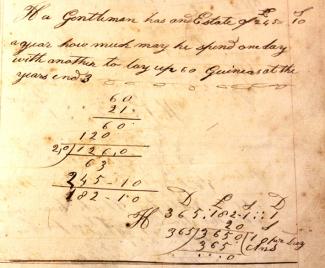 If a Gentleman has an Estate of £245 - S10
a year how much may he spend one day
with another to lay up 60 Guineas at the
years end
60
21
60
120
2,0)126,0
63
245-10
182-10
D £ S D
If 365:182-1::1
20 S
365)3650(10 per Day
365 Ans
0